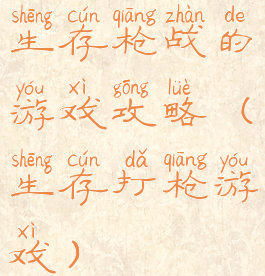 shēng cún qiāng zhàn de
生存枪战的
yóu xì gōng lüè
游戏攻略（
shēng cún dǎ qiāng yóu
生存打枪游
xì
戏）